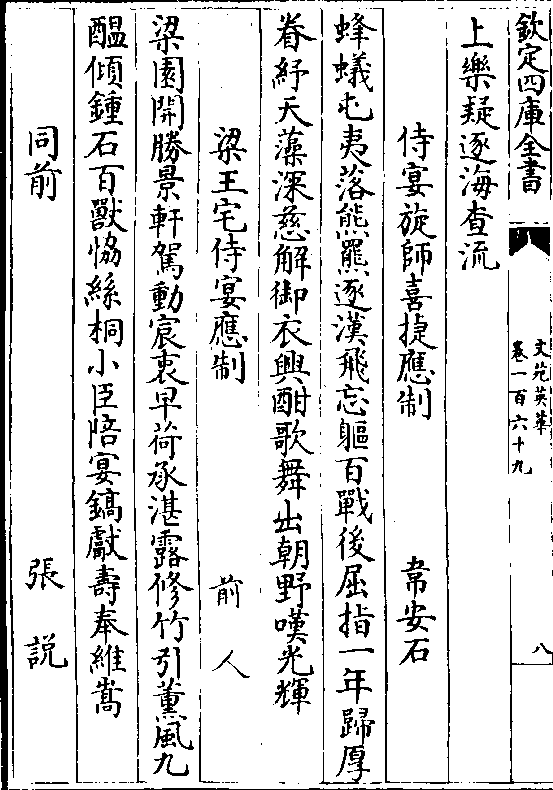 欽定四庫全書
文苑英華
卷一百六十九
八
上樂疑逐海查流
侍宴旋師喜捷應制 韋安石
蜂蟻屯夷落熊羆逐漢飛忘軀百戰後屈指一年歸厚
眷紓天藻深慈解御衣興酣歌舞出朝野嘆光輝
梁王宅侍宴應制 前人
梁園開勝景軒駕動宸衷早荷承湛露修竹引薰風九
醖傾鍾石百獸恊絲桐小臣陪宴鎬獻壽奉維嵩
同前 張説